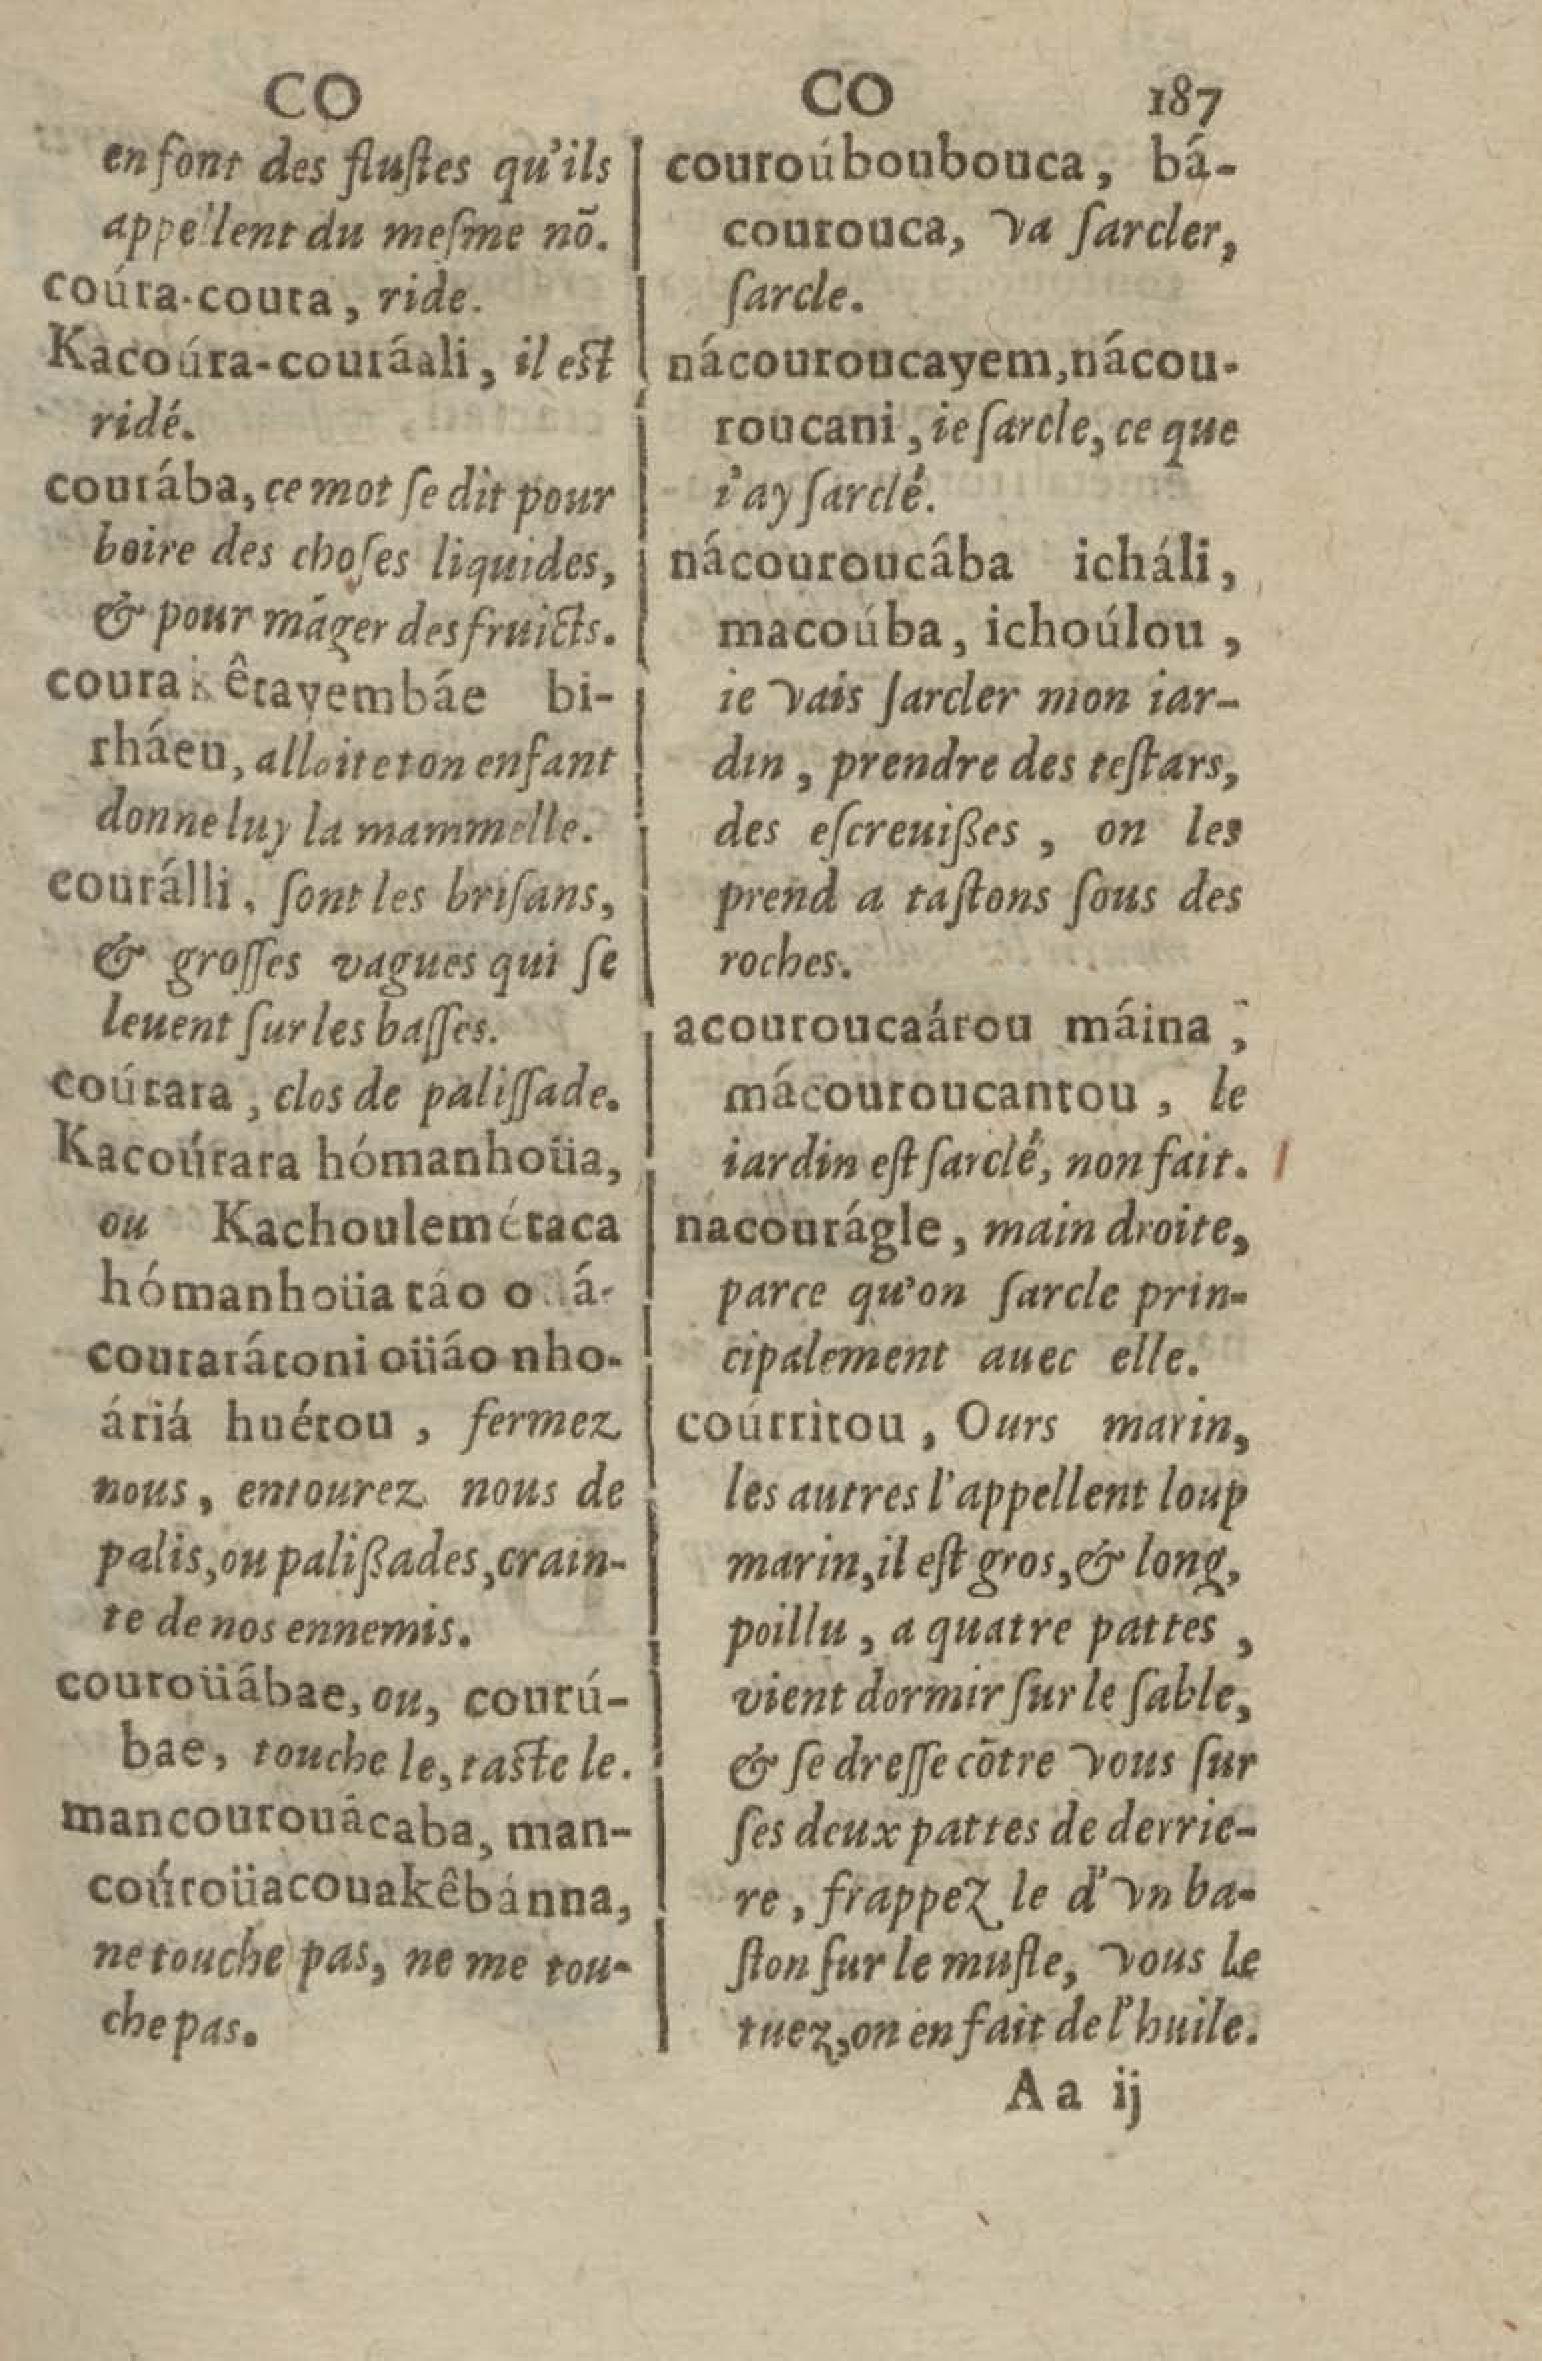 CO
en font des fluſtes qu'ils
appellent du meſme nõ.
coúra-coura, ride.
Kacoúra-couráali, il est
ridé.
courába, ce mot ſe dit pour
boire des choſes liquides,
& pour mãger des fruicts.
courakêtayembáe bi-
rháeu, alloite ton enfant
donne luy la mammelle.
courálli, ſont les briſans,
& groſſes vagues qui ſe
leuent ſur les baſſes.
coúrara, clos de paliſſade.
Kacoúrara hómanhoüa,
ou Kachoulemétaca
hómanhoüa táo o á-
couratátoni oüáo nho-
áriá huétou, fermez
nous, entourez nous de
palis, ou palißades, crain-
te de nos ennemis.
couroüábae, ou, courú-
bae, touche le, taste le.
mancourouácaba, man-
coúroüacouakêbánna,
ne touche pas, ne me tou-
che pas.
CO 187
couroúboubouca, bá-
courouca, va ſarcler,
ſarcle.
nácouroucayem, nácou-
roucani, ie ſarcle, ce que
i'ay ſarclé.
nácouroucâba icháli,
macoúba, ichoúlou,
ie vais ſarcler mon iar-
din, prendre des teſtars,
des eſcreuißes, on les
prend a taſtons ſous des
roches.
acouroucaárou máina,
mácouroucantou, le
iardin eſt ſarclé, non fait.
nacourágle, main droite,
parce qu'on ſarcle prin-
cipalement auec elle.
coúrritou, Ours marin,
les autres l'appellent loup
marin, il eſt gros, & long,
poillu, a quatre pattes,
vient dormir ſur le ſable,
& ſe dreſſe cõtre vous ſur
ſes deux pattes de derrie-
re, frappez le d'vn ba-
ſton ſur le mufle, vous le
tuez, on en fait de l'huile.
Aa ij